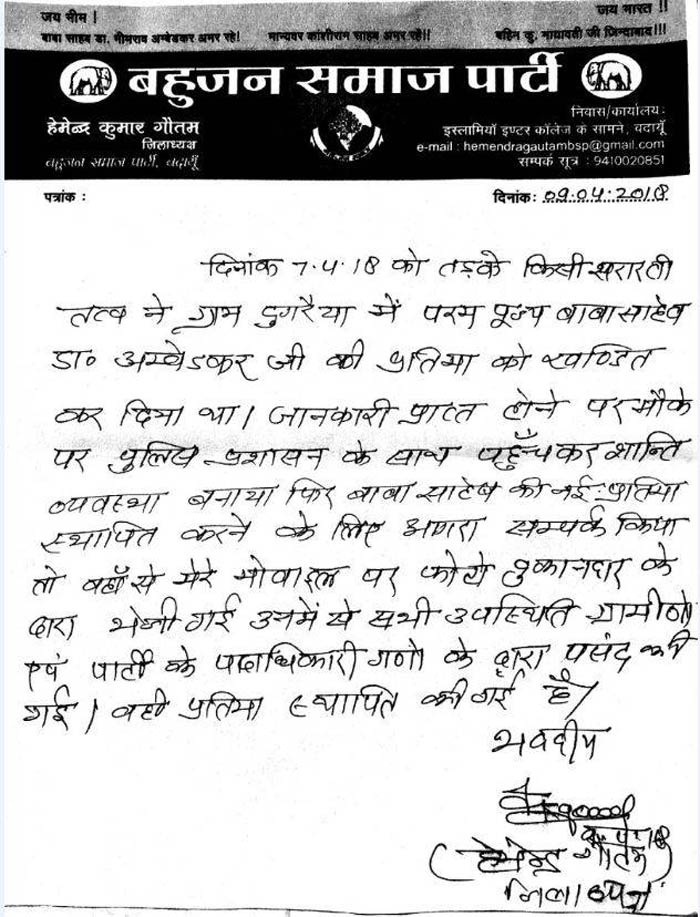 जय भीम !
जय भारत !!
बाबा साहब डा. भीमराव अम्बेडकर अमर रहे।
मान्यवर कांशीराम साहब अमर रहें!!
बहिन कु. मायावती जी ज़िन्दाबाद!!!
बहुजन समाज पार्टी
हेमेन्द्र कुमार गौतम
जिलाध्यक्ष
बहुजन समाज पार्टी, बदायूँ
निवास/कार्यालय :
इस्लामियाँ इण्टर कॉलेज के सामने, बदायूँ
e-mail : hemendragautambsp@gmail.com
सम्पर्क सूत्र : 9410020851
पत्रांक :
दिनांक: 09.04.2018
दिनांक 7.4.18 को तड़के किसी शरारती
तत्व ने ग्राम दुगरैया में परम पूज्य बाबासाहेव
डा० अम्वेडकर जी की प्रतिमा को खण्डित
कर दिया था। जानकारी प्राप्त होने पर मौके
पर पुलिस प्रशासन के साथ पहुँचकर शान्ति
व्यवस्था बनाया फिर बाबा साहेब की नई प्रतिमा
स्थापित करने के लिए आगरा सम्पर्क किया
तो वहाँ से मेरे मोवाइल पर फोटो दुकानदार के
द्वारा भेजी गई उनमें से सभी उपस्थिति ग्रामीणो
एवं पार्टी के पदाधिकारी गणो के द्वारा पसंद की
गई। वही प्रतिमा स्थापित की गई है।
भवदीय
(हेमेन्द्र गौतम)
जिलाध्यक्ष